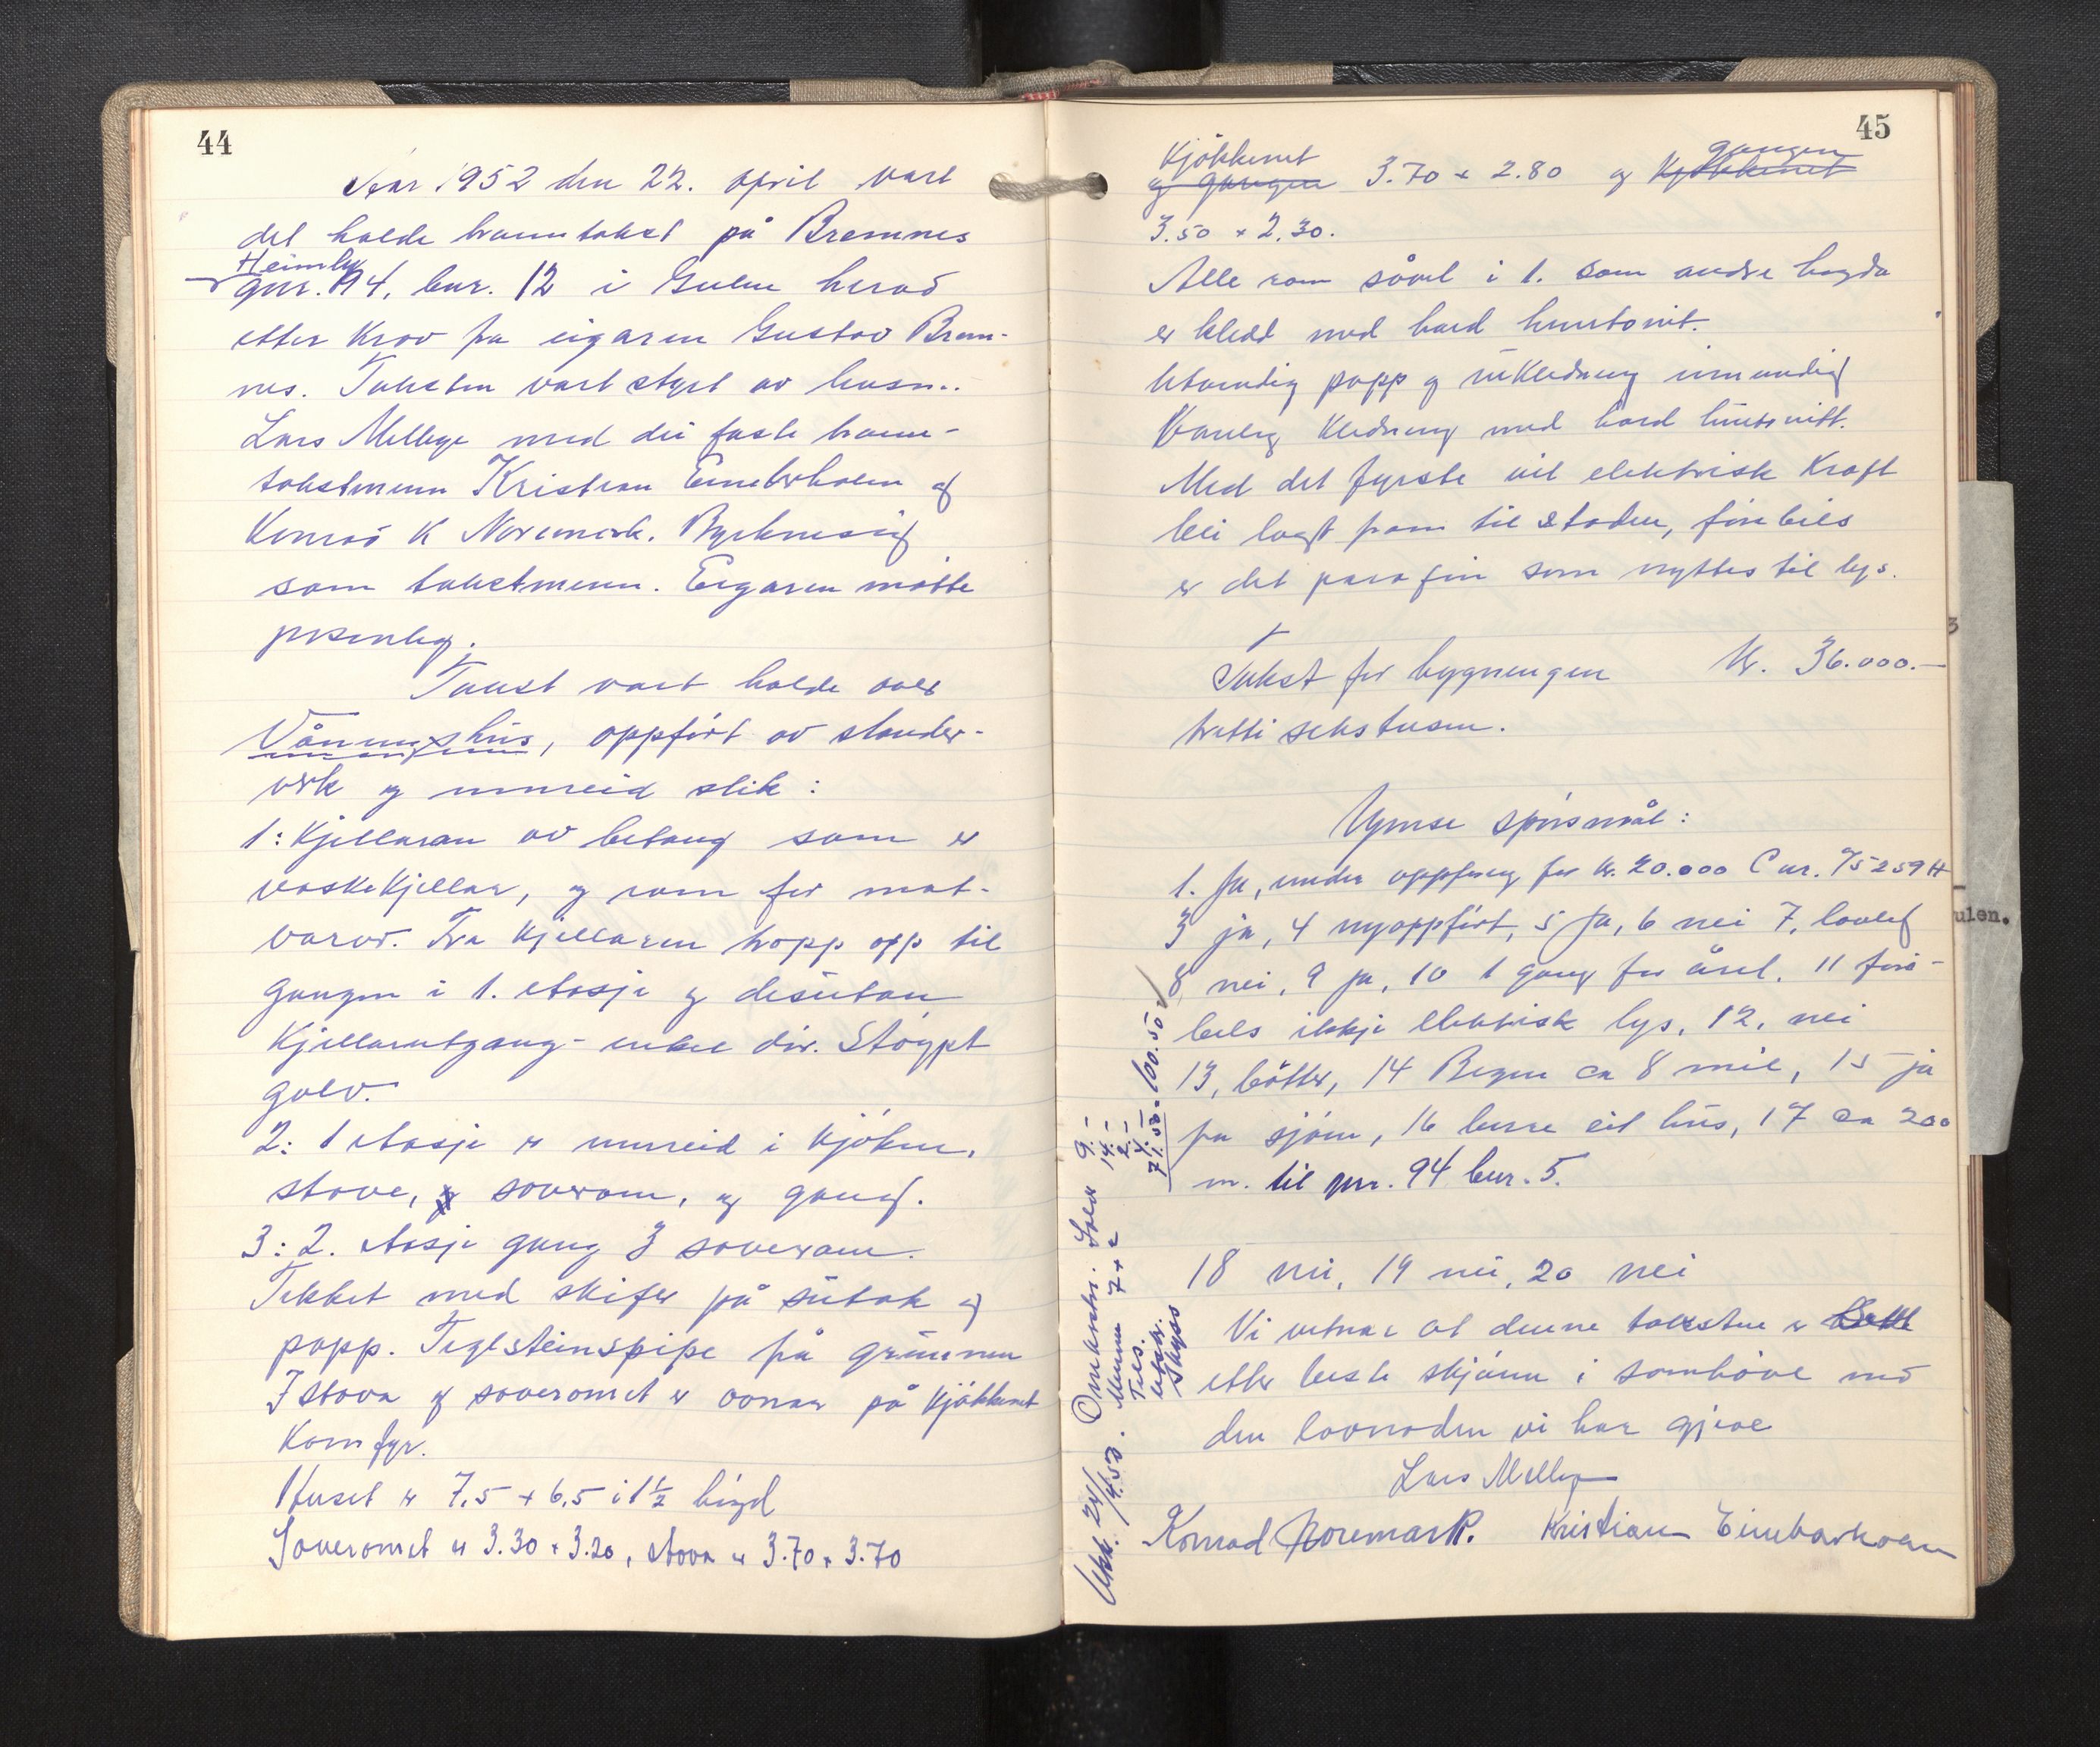 44
Aar 1952 den 22. april vart
det halde branntakst på Bremnes
Heimly
gnr. 94, bnr. 12 i Gulen herad
etter krav fra eigaren Gustav Brem-
nes. Taksten vart styrt av lensm.
Lars Mellbye med dei faste brann-
takstmenn Kristian Einebærholm og
Konrad K Noremark. Byrknesöy
som takstmenn. Eigaren mötte
personleg.
Takst vart halde over
Våningshus, oppfört av stender-
verk og innreid slik:
1: Kjellaren av betong som er
vaskekjellar, og rom for mat-
varer. Fra kjellaren trapp opp til
gangen i 1. etasje og desutan
Kjellarutgang - enkel dör. Stöypt
golv.
2: 1 etasje er innreid i kjöken,
stove, og soverom, og gang.
3: 2. etasje gang 3 soverom.
Tekket med skifer på sutak og
papp. Teglsteinspipe frå grunnen
I stova og soveromet er ovnar på kjökkenet
Komfyr.
Huset er 7,5 x 6,5 i 1½ högd
Soveromet er 3.30 x 3.20, stova er 3.70 x 3.70
45
Kjökkenet gangen
og gangen 3.70 x 2.80 og Kjökkenet
3.50 x 2.30.
Alle rom såvel i 1. som andre högda
er kledd med hard huntonit.
Utvendig papp og utkledning innvendig
Vanleg kledning med hard huntonitt.
Med det fyrste vil elektrisk kraft
bli lagt fram til staden, förebils
er det parafin som nyttes til lys.
Takst for bygningen Kr. 36.000.-
tretti sekstusen.
Ymse spörsmål:
1. Ja, under oppföring for kr. 20.000 C nr. 75259 H
3 ja, 4 nyoppfört, 5 ja, 6 nei 7, lovleg
8 nei, 9 ja, 10 1 gang for året, 11 före-
bels ikkje elektrisk lys, 12, nei
13, bötter, 14 Bergen ca 8 mil, 15 ja
fra sjöen, 16 berre eit hus, 17 ca 200
m. til gnr. 94 bnr. 5.
18 nei, 19 nei, 20 nei
Vi vitnar at denne taksten er
etter beste skjönn i samhöve med
den lovnaden vi har gjeve
Lars Mellbye
Konrad Noremark. Kristian Einebærholm
9.-
Menn 7+7 14.-
2.-
Utskr. 4.-
Skyss 71.50 = 100.50
ulen.